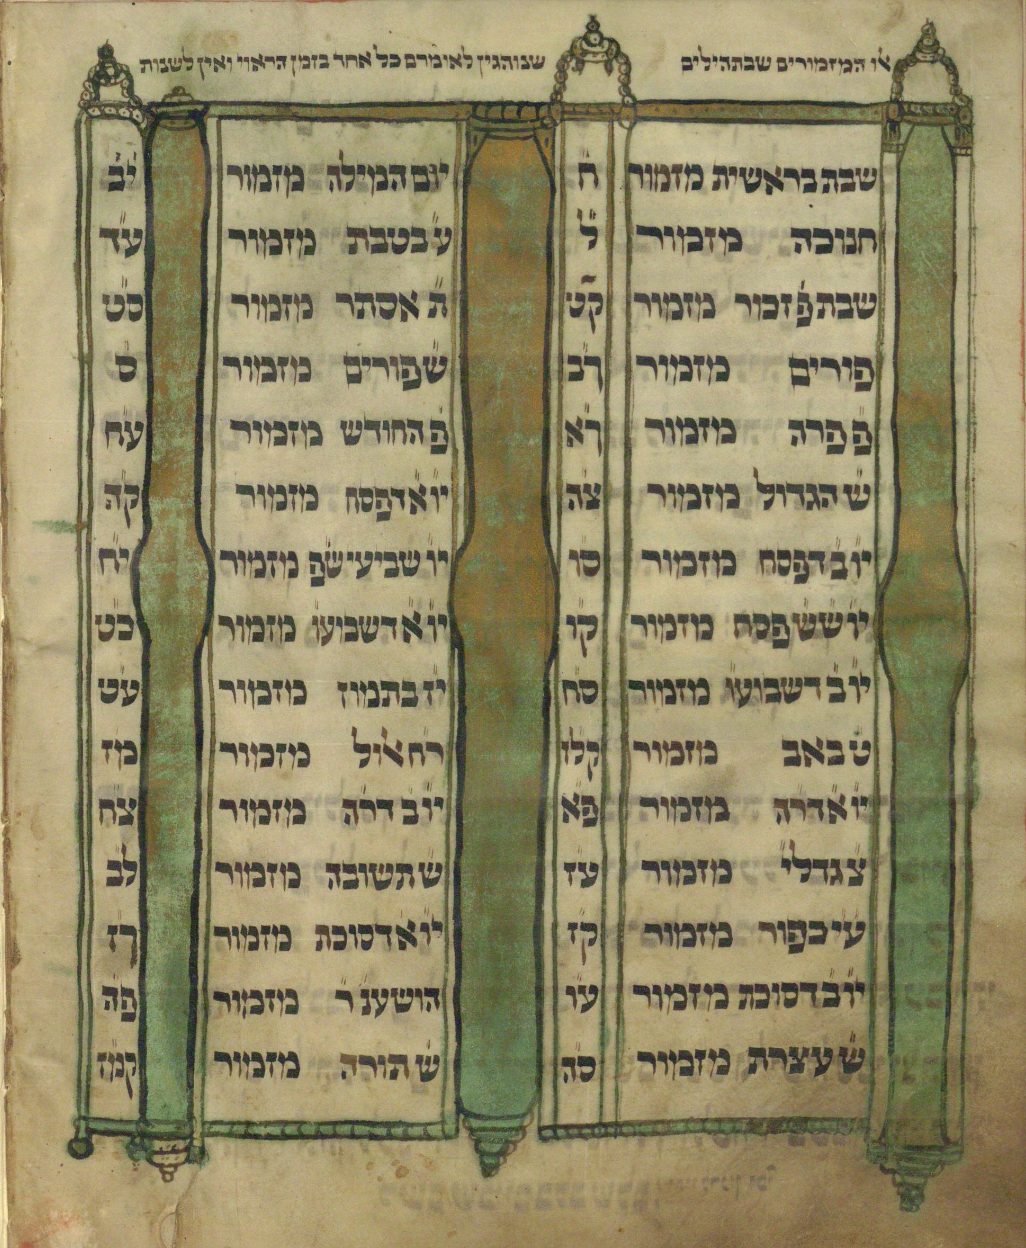 אלו המזמורים שבתהילים שנוהגין לאומרם כל אחד בזמן הראוי ואין לשנות
שבת בראשית מזמור ח יום המילה מזמור יב
חנוכה מזמור ל ע בטבת מזמור עד
שבת פ זכור מזמור קט ת אסתר מזמור סט
פורים מזמור ךב ש פורים מזמור ס
פ פרה מזמור ךא פ החודש מזמור עח
ש הגדול מזמור צה יו א דפסח מזמור קה
יו ב דפסח מזמור סו יו שביעי ש פ מזמור יח
יו ש ש פסח מזמור קו יו א דשבועו מזמור כט
יו ב דשבועו מזמור סח יז בתמוז מזמור עט
ט באב מזמור קלז ר ח אלול מזמור מז
יו א דרה מזמור פא יו ב דרה מזמור צח
צ גדלי מזמור עז ש תשובה מזמור לב
ע יכפור מזמור קז יו א דסוכת מזמור ךז
יו ב דסוכת מזמור עו הושענ ר מזמור פה
ש עצרת מזמור סה ש תורה מזמור קמז